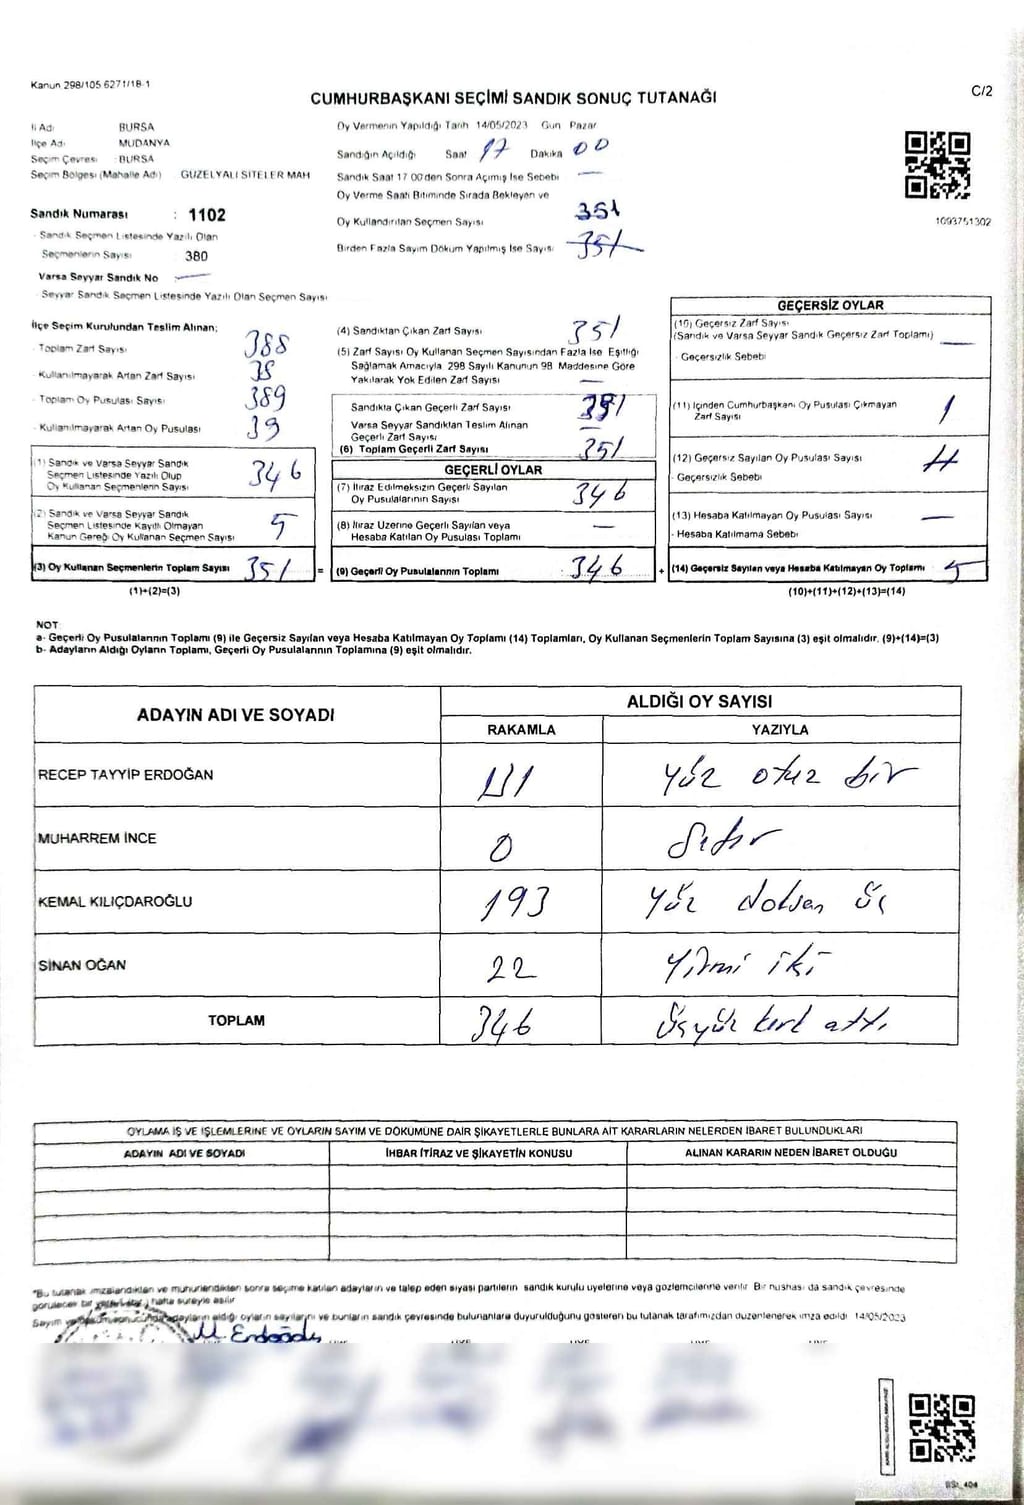 Kanun 298/105 6271/18-1
CUMHURBAŞKANI SEÇİMİ SANDIK SONUÇ TUTANAĞI
C/2
İl Adı BURSA
İlçe Adı MUDANYA
Seçim Çevresi : BURSA
Seçim Bölgesi (Mahalle Adı) GÜZELYALI SİTELER MAH
Sandık Numarası : 1102
- Sandık Seçmen Listesinde Yazılı Olan
Seçmenlerin Sayısı : 380
Varsa Seyyar Sandık No —
- Seyyar Sandık Seçmen Listesinde Yazılı Olan Seçmen Sayısı
Oy Vermenin Yapıldığı Tarih 14/05/2023 Gün Pazar
Sandığın Açıldığı Saat 17 Dakika 00
Sandık Saat 17 00'den Sonra Açılmış İse Sebebi —
Oy Verme Saati Bitiminde Sırada Bekleyen ve
Oy Kullandırılan Seçmen Sayısı 351
Birden Fazla Sayım Döküm Yapılmış İse Sayısı 351
1093751302
İlçe Seçim Kurulundan Teslim Alınan;
- Toplam Zarf Sayısı 388
- Kullanılmayarak Artan Zarf Sayısı 38
- Toplam Oy Pusulası Sayısı 389
- Kullanılmayarak Artan Oy Pusulası 39
(1) Sandık ve Varsa Seyyar Sandık
Seçmen Listesinde Yazılı Olup
Oy Kullanan Seçmenlerin Sayısı 346
(2) Sandık ve Varsa Seyyar Sandık
Seçmen Listesinde Kayıtlı Olmayan
Kanun Gereği Oy Kullanan Seçmen Sayısı 5
(3) Oy Kullanan Seçmenlerin Toplam Sayısı 351 =
(1)+(2)=(3)
(4) Sandıktan Çıkan Zarf Sayısı 351
(5) Zarf Sayısı Oy Kullanan Seçmen Sayısından Fazla İse Eşitliği
Sağlamak Amacıyla 298 Sayılı Kanunun 98 Maddesine Göre
Yakılarak Yok Edilen Zarf Sayısı —
Sandıkta Çıkan Geçerli Zarf Sayısı 351
Varsa Seyyar Sandıktan Teslim Alınan
Geçerli Zarf Sayısı —
(6) Toplam Geçerli Zarf Sayısı 351
GEÇERLİ OYLAR
(7) İtiraz Edilmeksizin Geçerli Sayılan
Oy Pusulalarının Sayısı 346
(8) İtiraz Üzerine Geçerli Sayılan veya
Hesaba Katılan Oy Pusulası Toplamı —
(9) Geçerli Oy Pusulalarının Toplamı 346 +
GEÇERSİZ OYLAR
(10) Geçersiz Zarf Sayısı
(Sandık ve Varsa Seyyar Sandık Geçersiz Zarf Toplamı) —
- Geçersizlik Sebebi
(11) İçinden Cumhurbaşkanı Oy Pusulası Çıkmayan
Zarf Sayısı 1
(12) Geçersiz Sayılan Oy Pusulası Sayısı 4
- Geçersizlik Sebebi
(13) Hesaba Katılmayan Oy Pusulası Sayısı —
- Hesaba Katılmama Sebebi
(14) Geçersiz Sayılan veya Hesaba Katılmayan Oy Toplamı 5
(10)+(11)+(12)+(13)=(14)
NOT
a- Geçerli Oy Pusulalarının Toplamı (9) ile Geçersiz Sayılan veya Hesaba Katılmayan Oy Toplamı (14) Toplamları, Oy Kullanan Seçmenlerin Toplam Sayısına (3) eşit olmalıdır. (9)+(14)=(3)
b- Adayların Aldığı Oyların Toplamı, Geçerli Oy Pusulalarının Toplamına (9) eşit olmalıdır.
ADAYIN ADI VE SOYADI
ALDIĞI OY SAYISI
RAKAMLA YAZIYLA
RECEP TAYYİP ERDOĞAN 131 Yüz otuz bir
MUHARREM İNCE 0 Sıfır
KEMAL KILIÇDAROĞLU 193 Yüz doksan üç
SİNAN OĞAN 22 Yirmi iki
TOPLAM 346 Üçyüz kırk altı
OYLAMA İŞ VE İŞLEMLERİNE VE OYLARIN SAYIM VE DÖKÜMÜNE DAİR ŞİKAYETLERLE BUNLARA AİT KARARLARIN NELERDEN İBARET BULUNDUKLARI
ADAYIN ADI VE SOYADI İHBAR İTİRAZ VE ŞİKAYETİN KONUSU ALINAN KARARIN NEDEN İBARET OLDUĞU
"Bu tutanak imzalandıktan ve mühürlendikten sonra seçime katılan adayların ve talep eden siyasi partilerin sandık kurulu üyelerine veya gözlemcilerine verilir Bir nüshası da sandık çevresinde
görülecek bir yere bir hafta süreyle asılır
Sayım ve döküm sonucunda adayların aldığı oyların sayılarını ve bunların sandık çevresinde bulunanlara duyurulduğunu gösteren bu tutanak tarafımızdan düzenlenerek imza edildi 14/05/2023
M. Erdoğdu
BSI_404